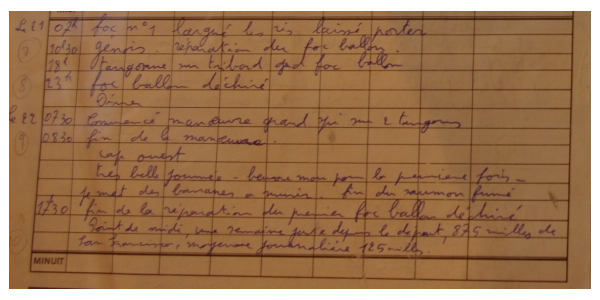 Le 21 07h foc n°1 largué les ris laissé porter
10h30 genois. réparation du foc ballon.
18h tangonné sur tribord foc ballon
23h foc ballon déchiré
Dîner
Le 22 0730 Commencé manœuvre grand spi sur 2 tangons
0830 fin de la manœuvre.
cap ouest
très belle journée - pour la première fois -
je met des bananes a murir. fin du saumon fumé
1730 fin de la réparation du premier foc ballon déchiré
Point de midi, une semaine juste depuis le départ, 875 milles de
San Francisco, moyenne journalière 125 milles.
MINUIT